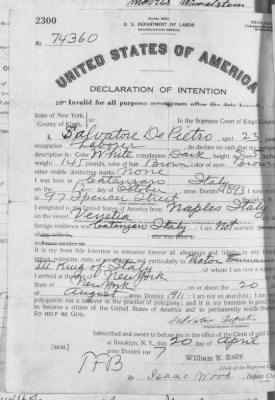 2300
Form 2203
U. S. DEPARTMENT OF LABOR
NATURALIZATION SERVICE
No. 74360
UNITED STATES OF AMERICA
DECLARATION OF INTENTION
Invalid for all purposes seven years after the date hereof
State of New York,
County of Kings,
In the Supreme Court of Kings County
I, Salvatore De Pietro, aged 23 years,
occupation Laborer, do declare on oath that my
description is: Color White, complexion Dark, height 5 feet
weight 145 pounds, color of hair Brown, color of eyes Brown
other visible distinctive marks None
I was born in Catanzaro Italy
on the day of October, anno Domini 1893; I now
at 97 Spencer Street
I emigrated to the United States of America from Naples Italy
Venezia
foreign residence was Catanzaro Italy I am not married;
It is my bona fide intention to renounce forever all allegiance and fidelity to any foreign
prince, potentate, state, or sovereignty, and particularly to Victor Emmanuel
III King of Italy, of whom I am now a
I arrived at the port of New York
New York, on or about the 20
of August, anno Domini 1911: I am not an anarchist; I am
polygamist nor a believer in the practice of polygamy; and it is my intention in good
to become a citizen of the United States of America and to permanently reside
SO HELP ME GOD.
Subscribed and sworn to before me in the office of the Clerk of said
[SEAL]
at Brooklyn, N. Y., this 20 day of April
anno Domini 1917
William E. Kelly,
Clerk of the Supreme
By Isaac Wood, Deputy Clerk